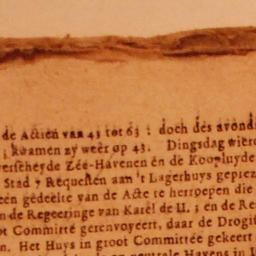 de Actien van 43 tot 63 : doch des avond
; kwamen zy weer op 43. Dingsdag wierd
verscheyde Zée-Havenen en de Koopluyde
Stad 7 Requesten aan 't Lagerhuys geprez
een gedeelte van de Acte te herroepen die
n de Regeeringe van Karel de II. en de Re
ot Committé gerenvoyeert, daar de Drogist
n. Het Huys in groot Committée gekeert
neutrale Havens in